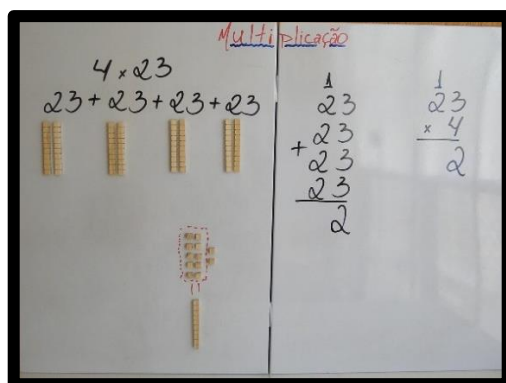 Multiplicação
4 x 23
23 + 23 + 23 + 23
1
23
+ 23
23
23
2
1
23
x 4
2